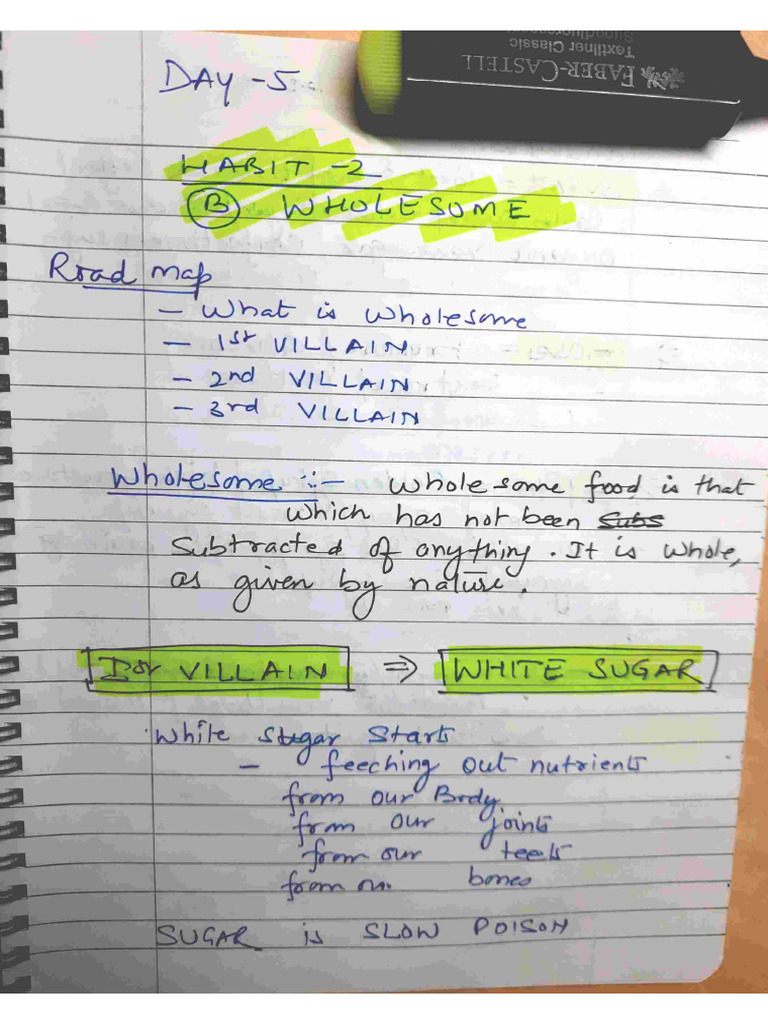 FABER-CASTELL
Textliner Classic
Superfluorescent
DAY -5
HABIT -2
(B) WHOLESOME
Road map
- What is wholesome
- 1st VILLAIN
- 2nd VILLAIN
- 3rd VILLAIN
Wholesome :- Whole some food is that
which has not been Subs
Subtracted of anything. It is whole,
as given by nature.
Ist VILLAIN ⇒ WHITE SUGAR
White Sugar Starts
- feeching out nutrients
from our Body
from our joints
from our teeth
from our bones
SUGAR is SLOW POISON